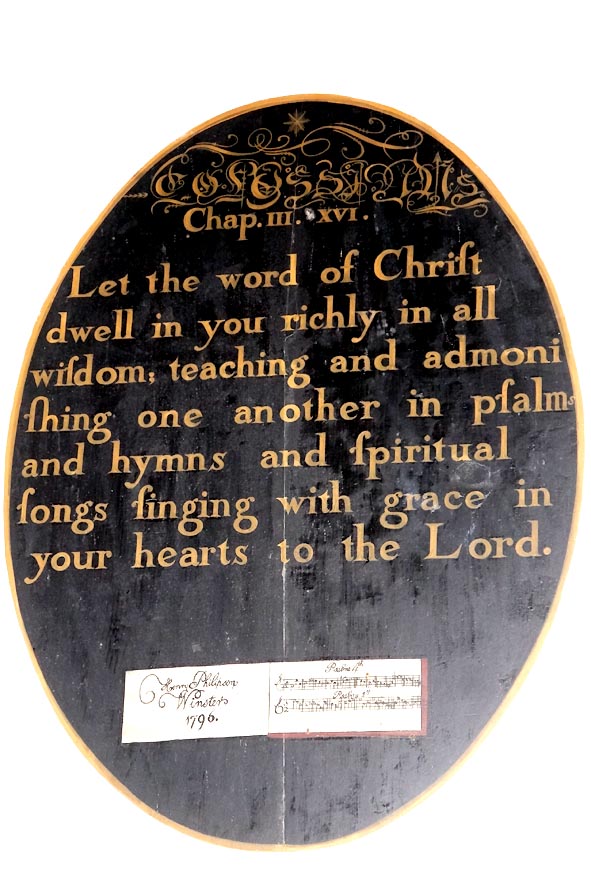 COLOSSIANS
Chap. III. XVI.
Let the word of Chriſt
dwell in you richly in all
wiſdom; teaching and admoni
ſhing one another in pſalms
and hymns and ſpiritual
ſongs ſinging with grace in
your hearts to the Lord.
Philipson
Winster
1796.
Psalm
Psalm